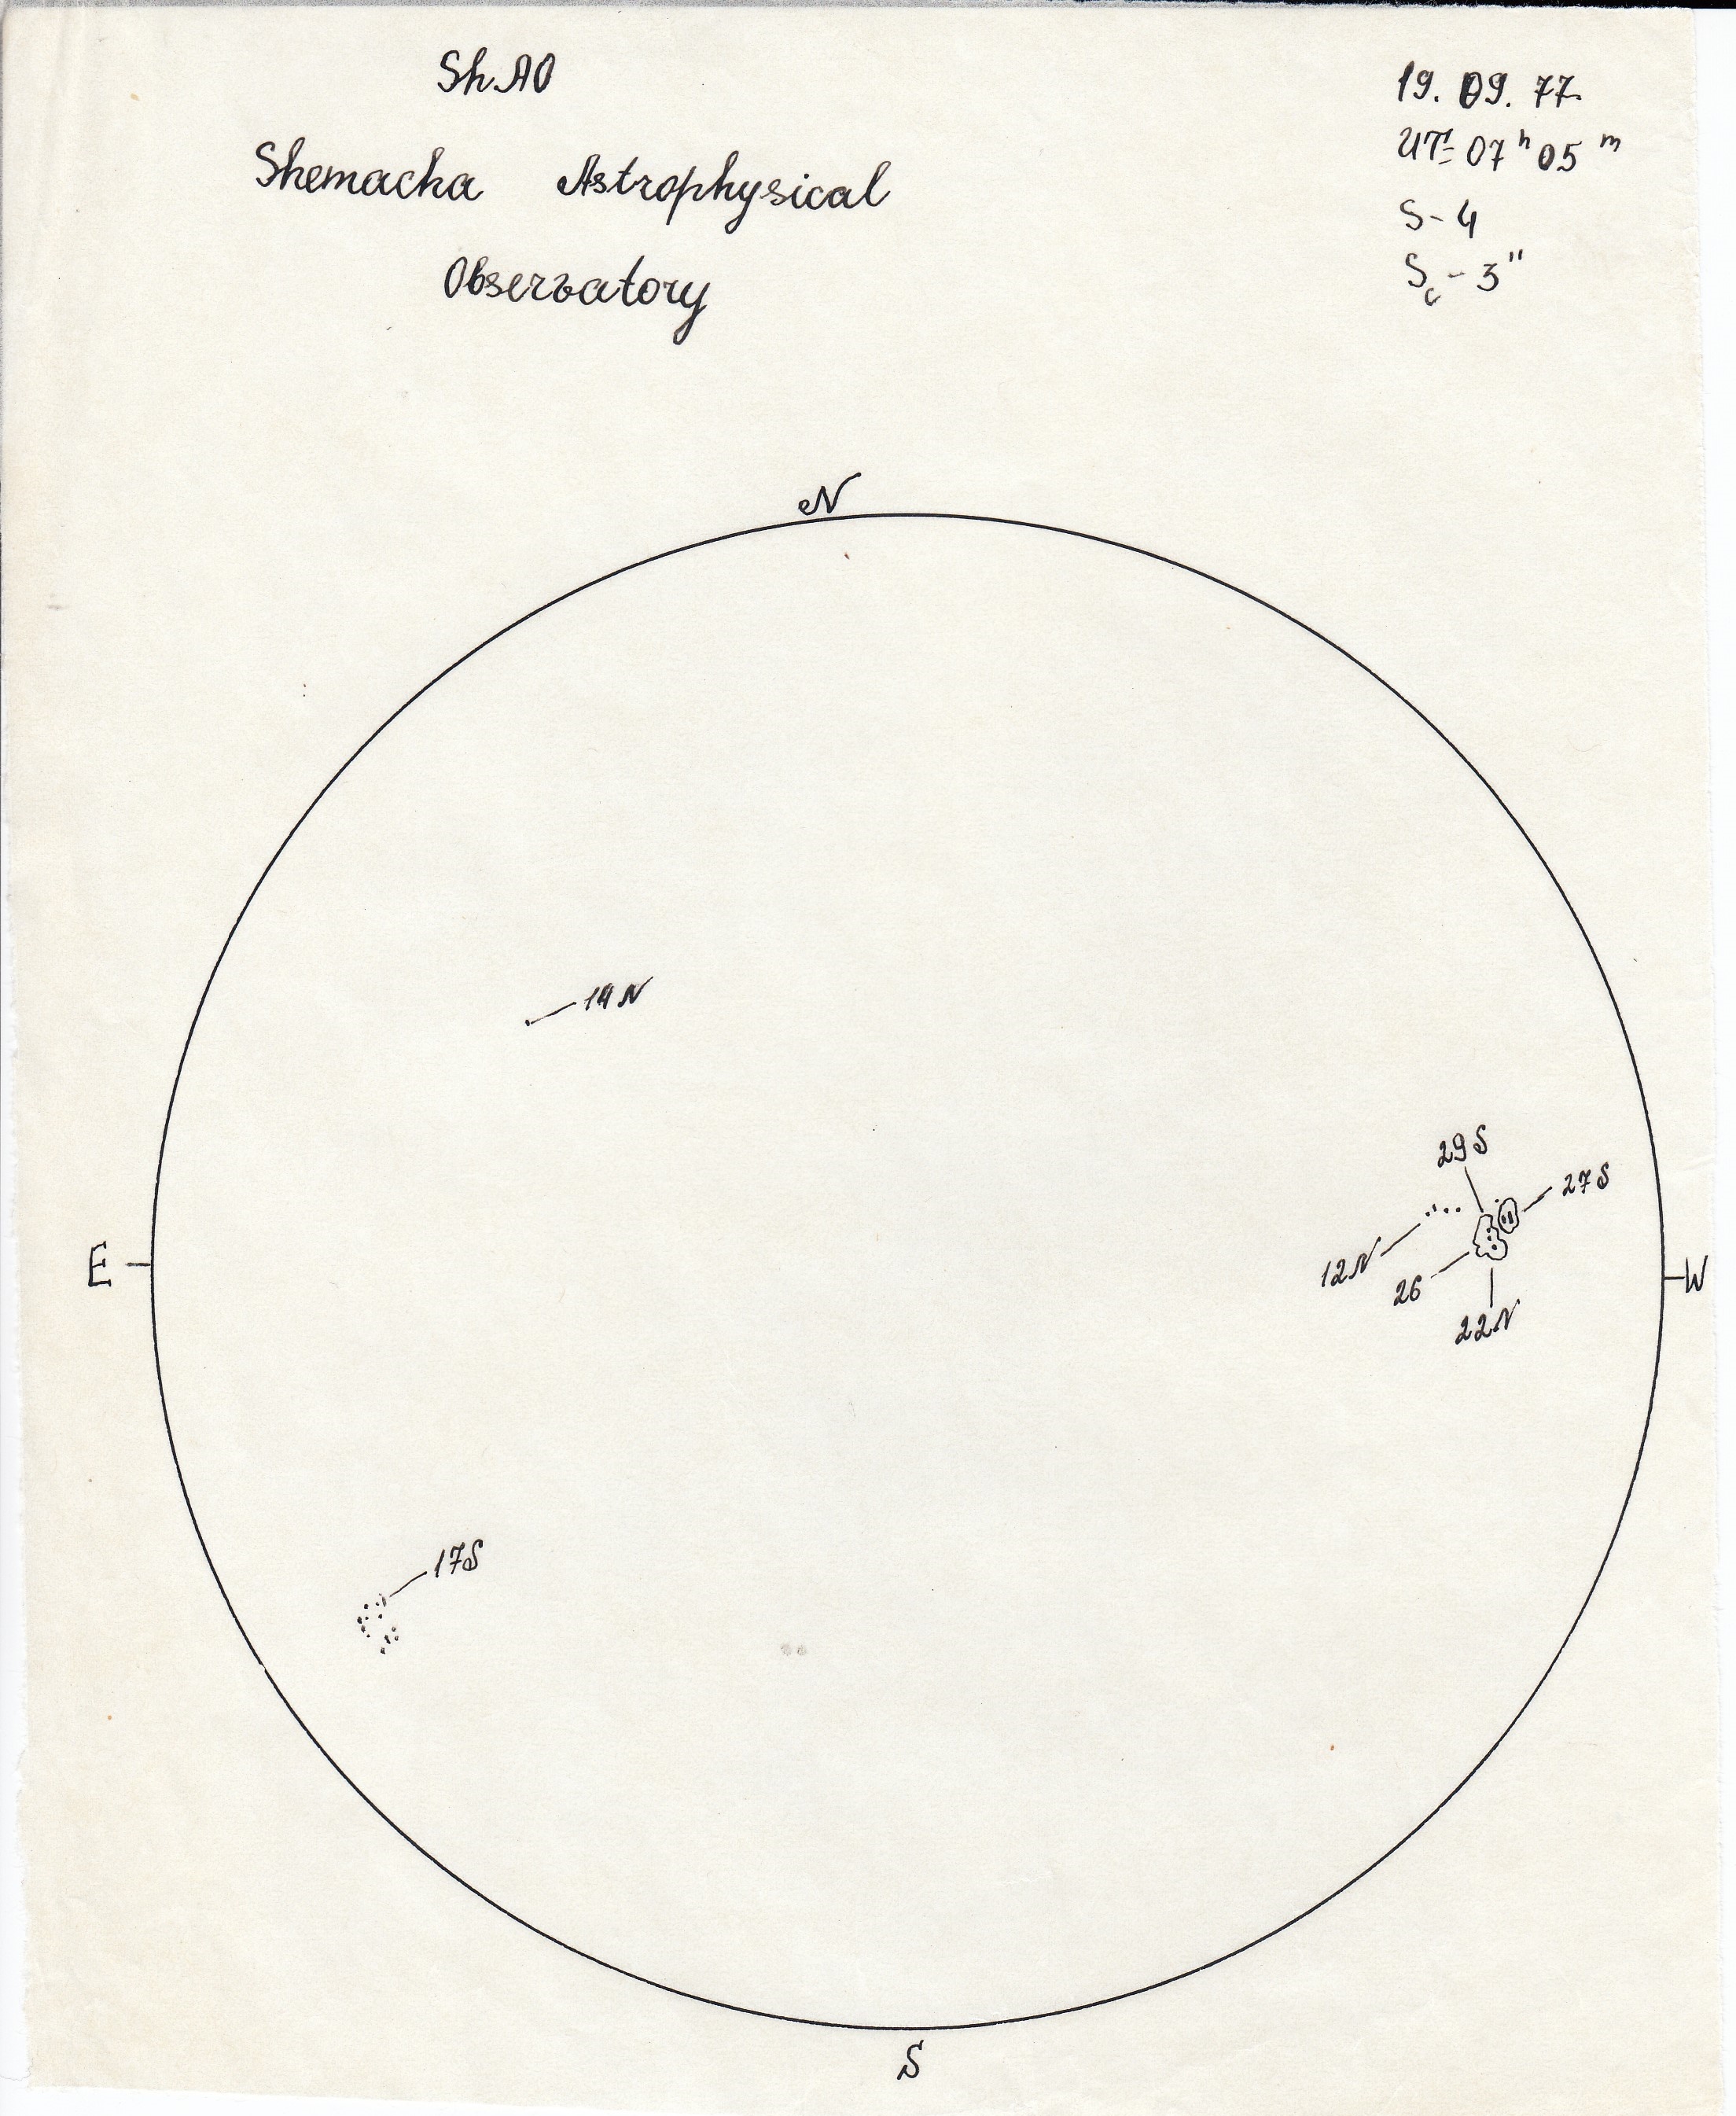 Sh.AO
Shemacha Astrophysical
Observatory
19. 09. 77.
UT= 07ʰ 05ᵐ
S - 4
S_c - 3"
N
14N
29S
27S
E
W
12N
26
22N
17S
S